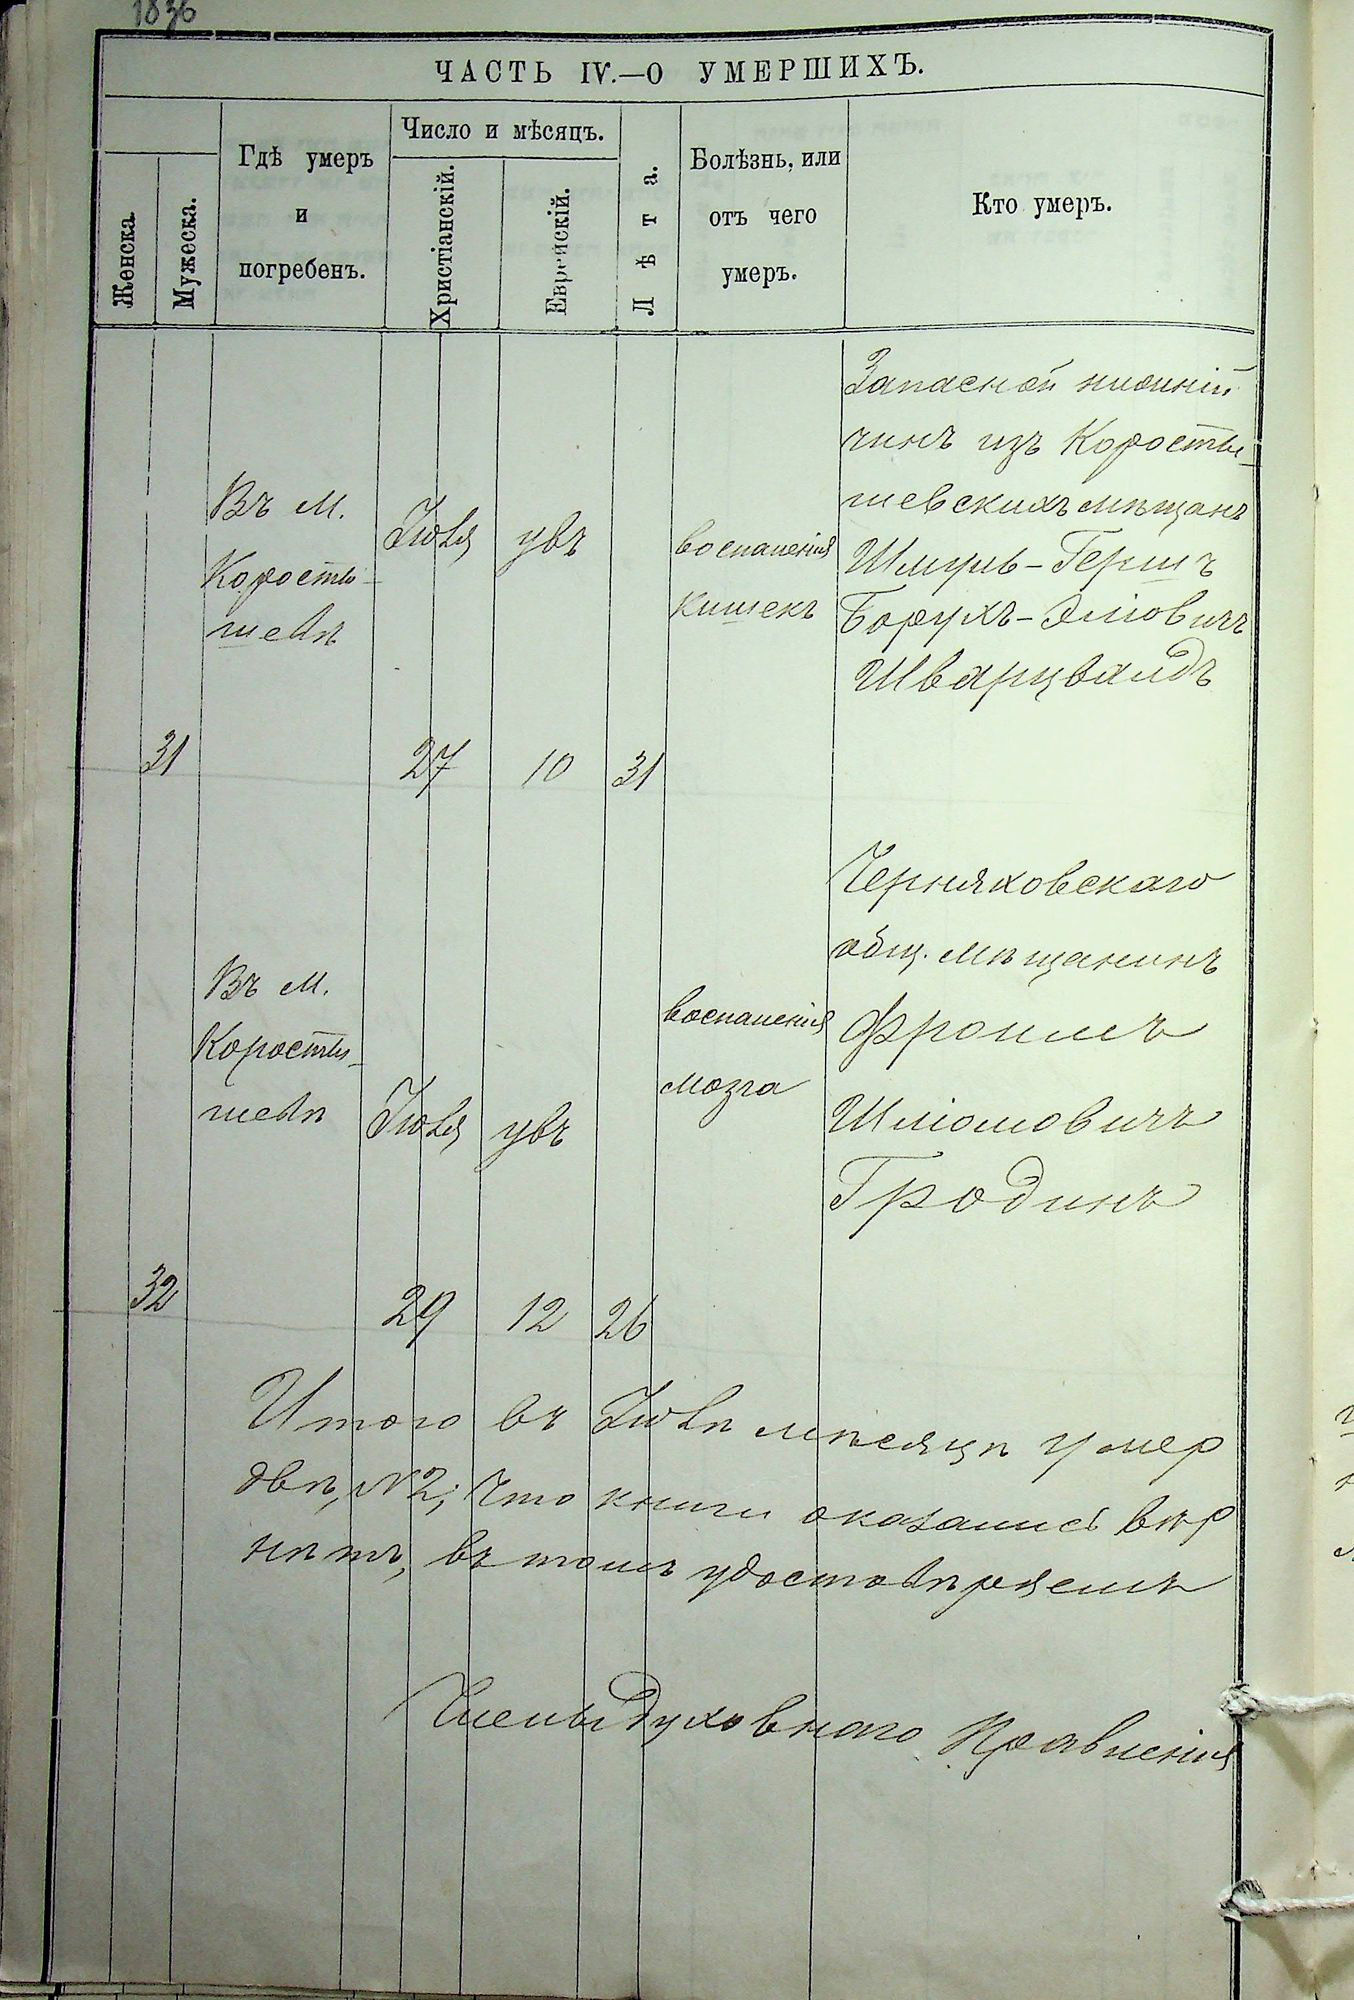 1836
ЧАСТЬ IV.—О УМЕРШИХЪ.
Женска.
Мужеска.
Гдѣ умеръ
и
погребенъ.
Число и мѣсяцъ.
Христіанскій.
Еврейскій.
Лѣта.
Болѣзнь, или
отъ чего
умеръ.
Кто умеръ.
Запасной нижній
чинъ изъ Коросты-
шевскихъ мѣщанъ
Въ м.
Коросты-
шевѣ
Іюля
увъ
воспаленія
кишекъ
Шмуль-Гершъ
Борухъ-Эліовичъ
Шварцвалдъ
31
27
10
31
Черняховскаго
общ. мѣщанинъ
Въ м.
Коросты-
шевѣ
Іюля
увъ
воспаленія
мозга
Фроимъ
Шліомовичъ
Гродинъ
32
29
12
26
Итого въ Іюлѣ мѣсяцѣ умер
двѣ, №2; что книги оказались вѣр
въ томъ удостовѣряемъ
Члены Духовнаго Правленія